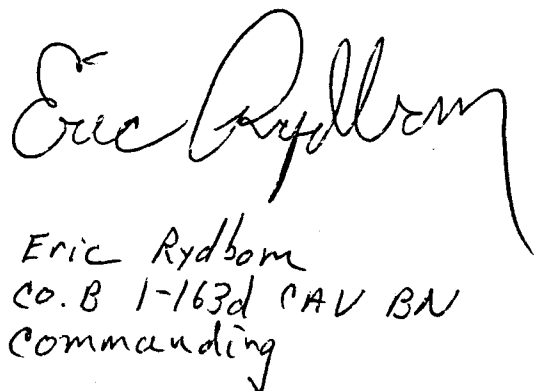 Eric Rydbom
Eric Rydbom
Co. B 1-163d CAV BN
Commanding